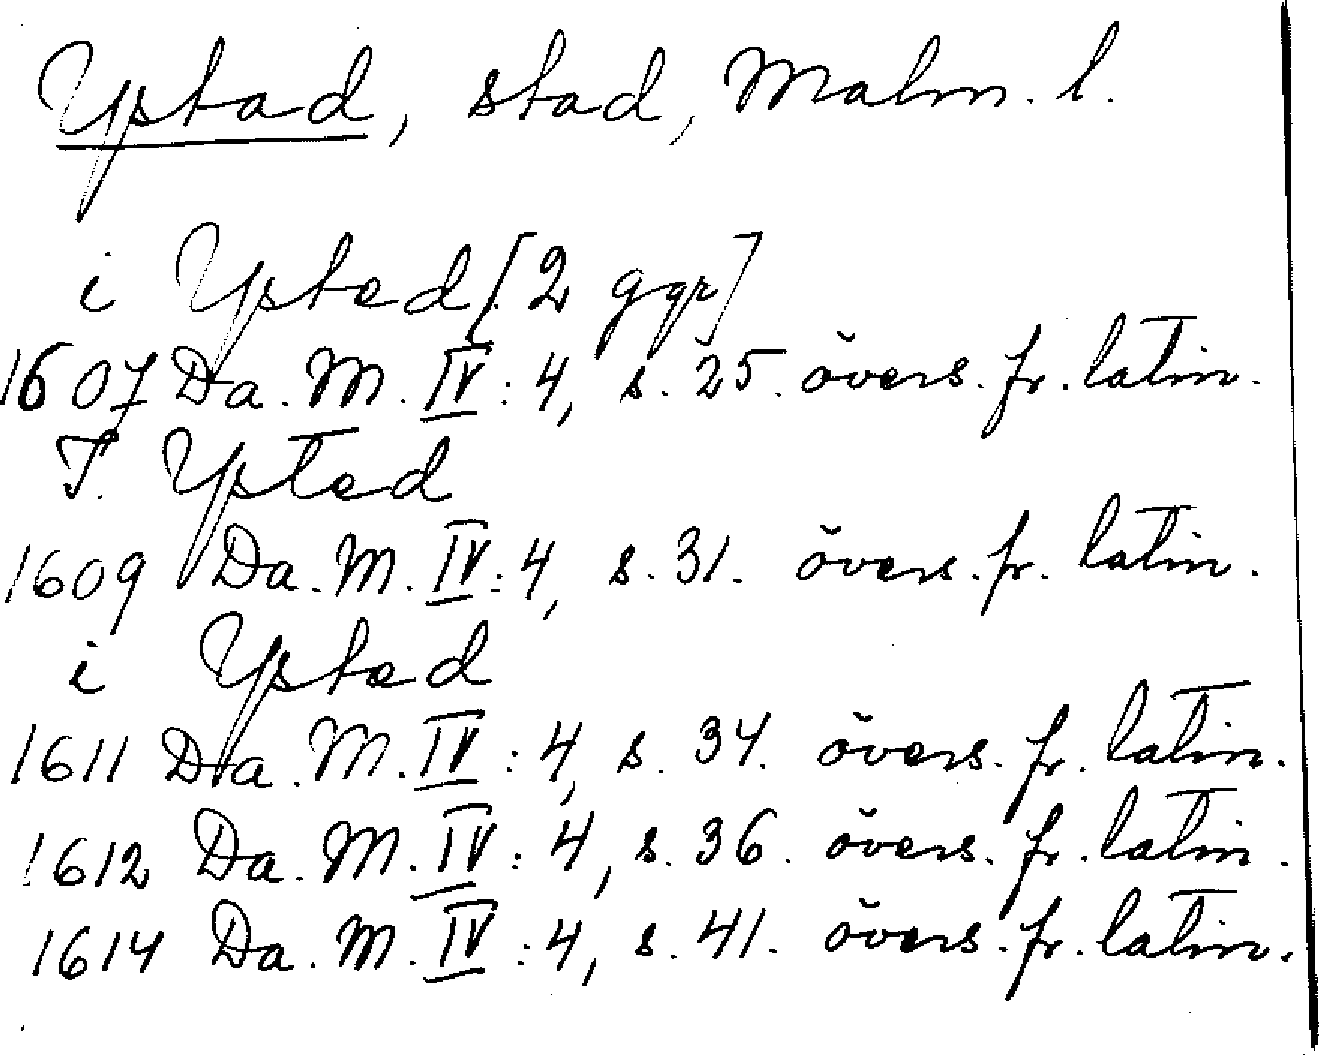 Ystad, stad, Malm. l.
i Ysted [2 ggr]
1607 Da. M. IV: 4, s. 25. övers. fr. latin.
I. Ysted
1609 Da. M. IV: 4, s. 31. övers. fr. latin.
i Ysted
1611 Da. M. IV: 4, s. 34. övers. fr. latin.
1612 Da. M. IV: 4, s. 36. övers. fr. latin.
1614 Da. M. IV: 4, s. 41. övers. fr. latin.